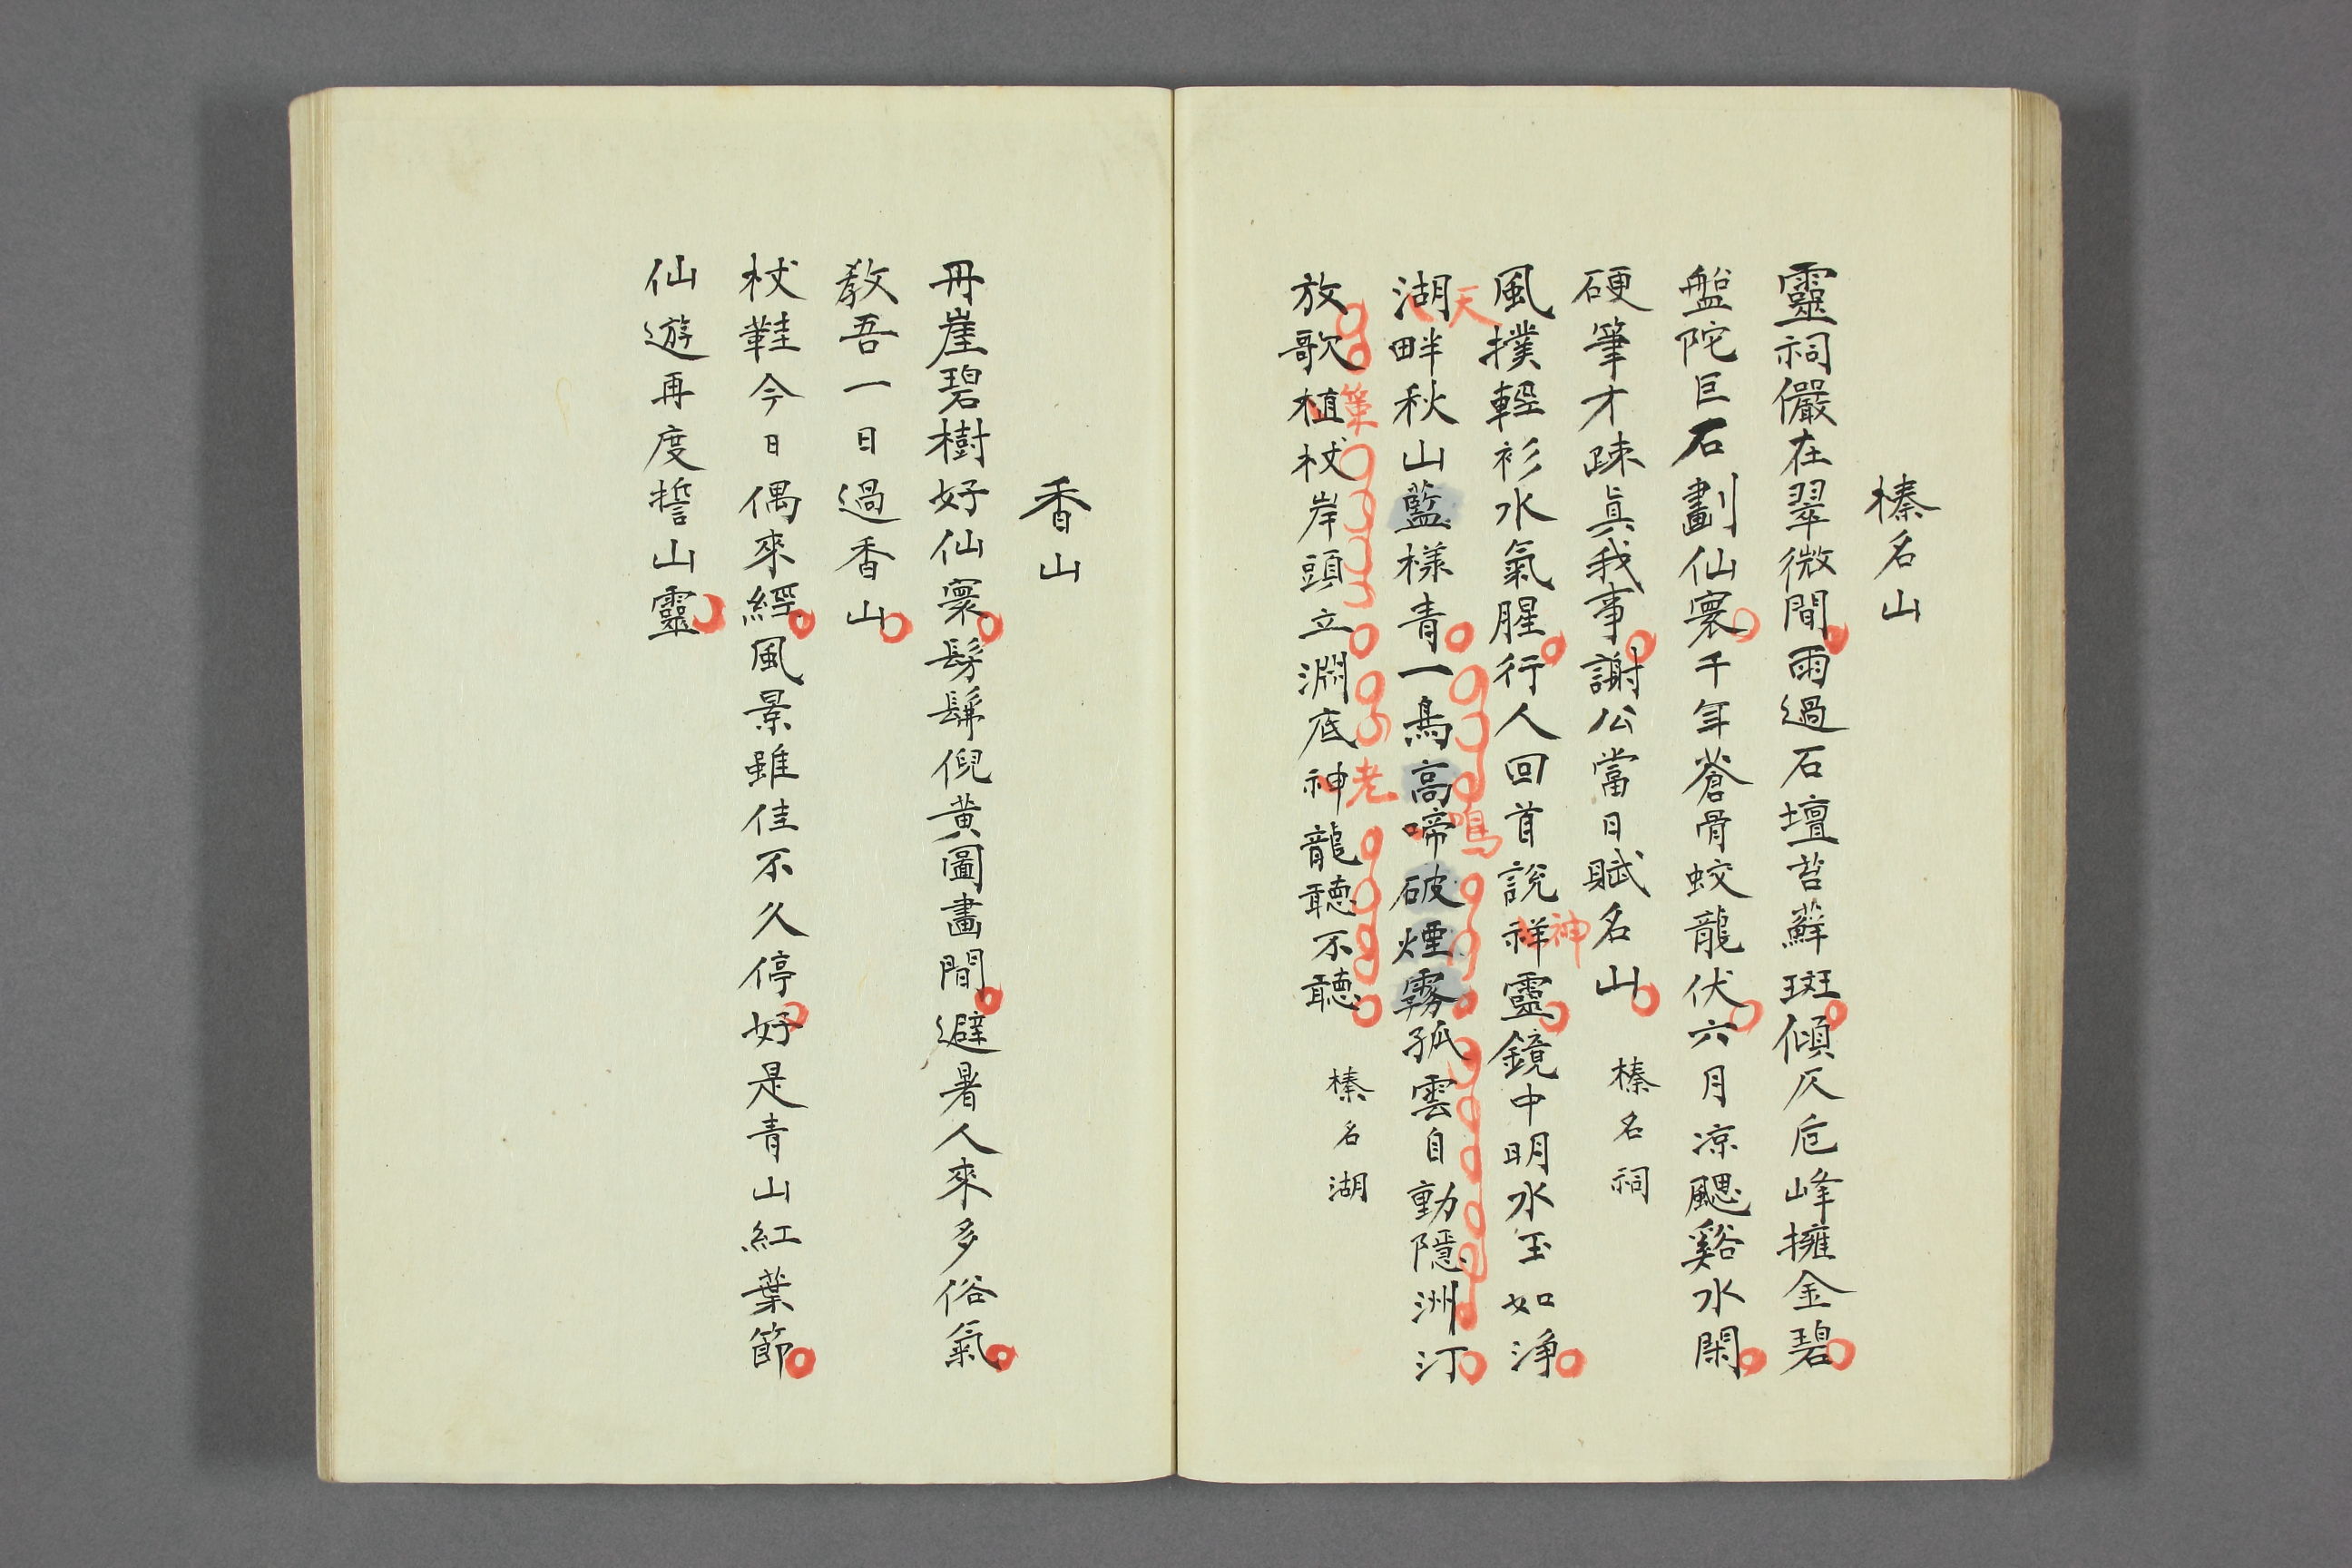 榛名山
靈祠儼在翠微間雨過石壇苔蘚斑傾仄危峰擁金碧
盤陀巨石劃仙寰千年蒼骨蛟龍伏六月凉颸谿水閑
硬筆才疎真我事謝公當日賦名山　榛名祠
神
風撲輕衫水氣腥行人回首說祥靈鏡中明水玉如淨
天　鳴
湖畔秋山藍樣青一鳥高啼破煙霧孤雲自動隱洲汀
策　老
放歌植杖岸頭立淵底神龍聽不聽　榛名湖
香山
丹崖碧樹好仙寰髣髴倪黃圖畫間避暑人來多俗氣
教吾一日過香山
杖鞋今日偶來經風景雖佳不久停好是青山紅葉節
仙遊再度誓山靈